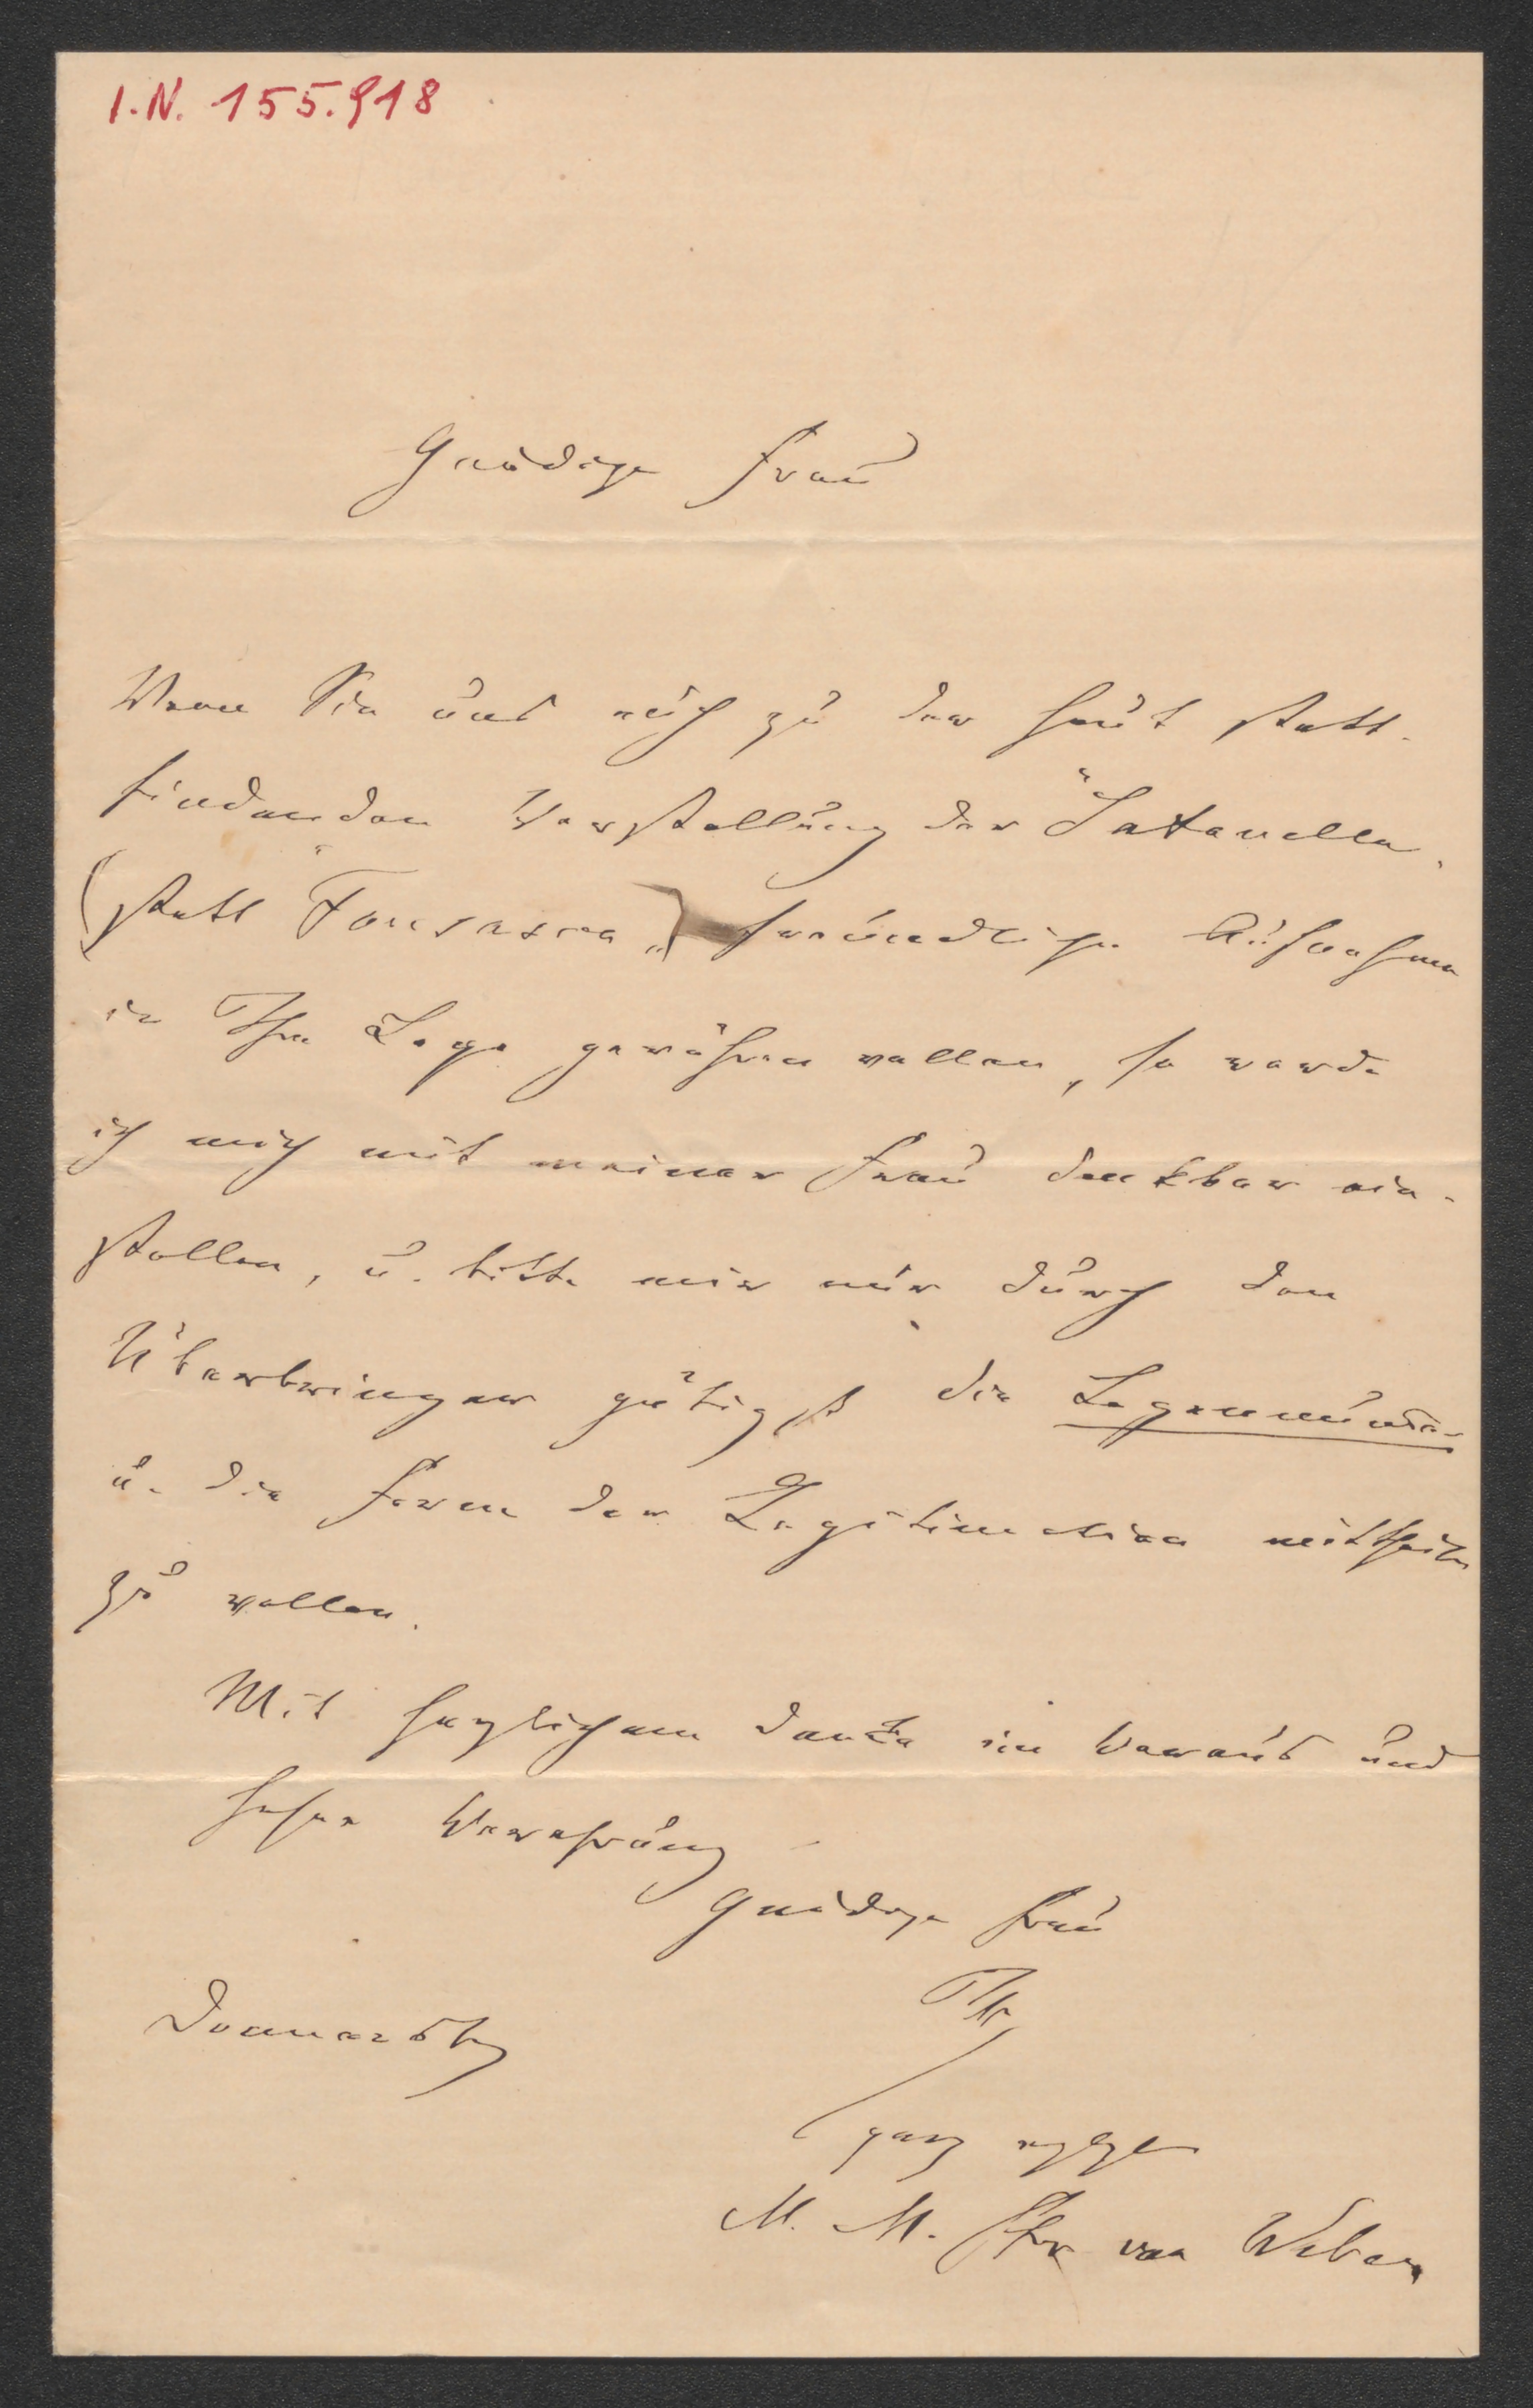 I.N. 155.918
Gnädige Frau
Wenn Sie uns auch zu der heut statt-
findenden Vorstellung der "Satanella"
(statt "Fantasca") freundliche Aufnahme
in Ihre Loge gewähren wollen, so werde
ich mich mit meiner Frau dankbar ein-
stellen, u. bitte mir nur durch den
Überbringer gütigst die Logennummer
u. die Form der Legitimation mittheilen
zu wollen.
Mit herzlichem Danke im Voraus und
hoher Verehrung
Gnädige Frau
Ihr
Donnerstg
ganz ergbn
M. M. Fhr von Weber